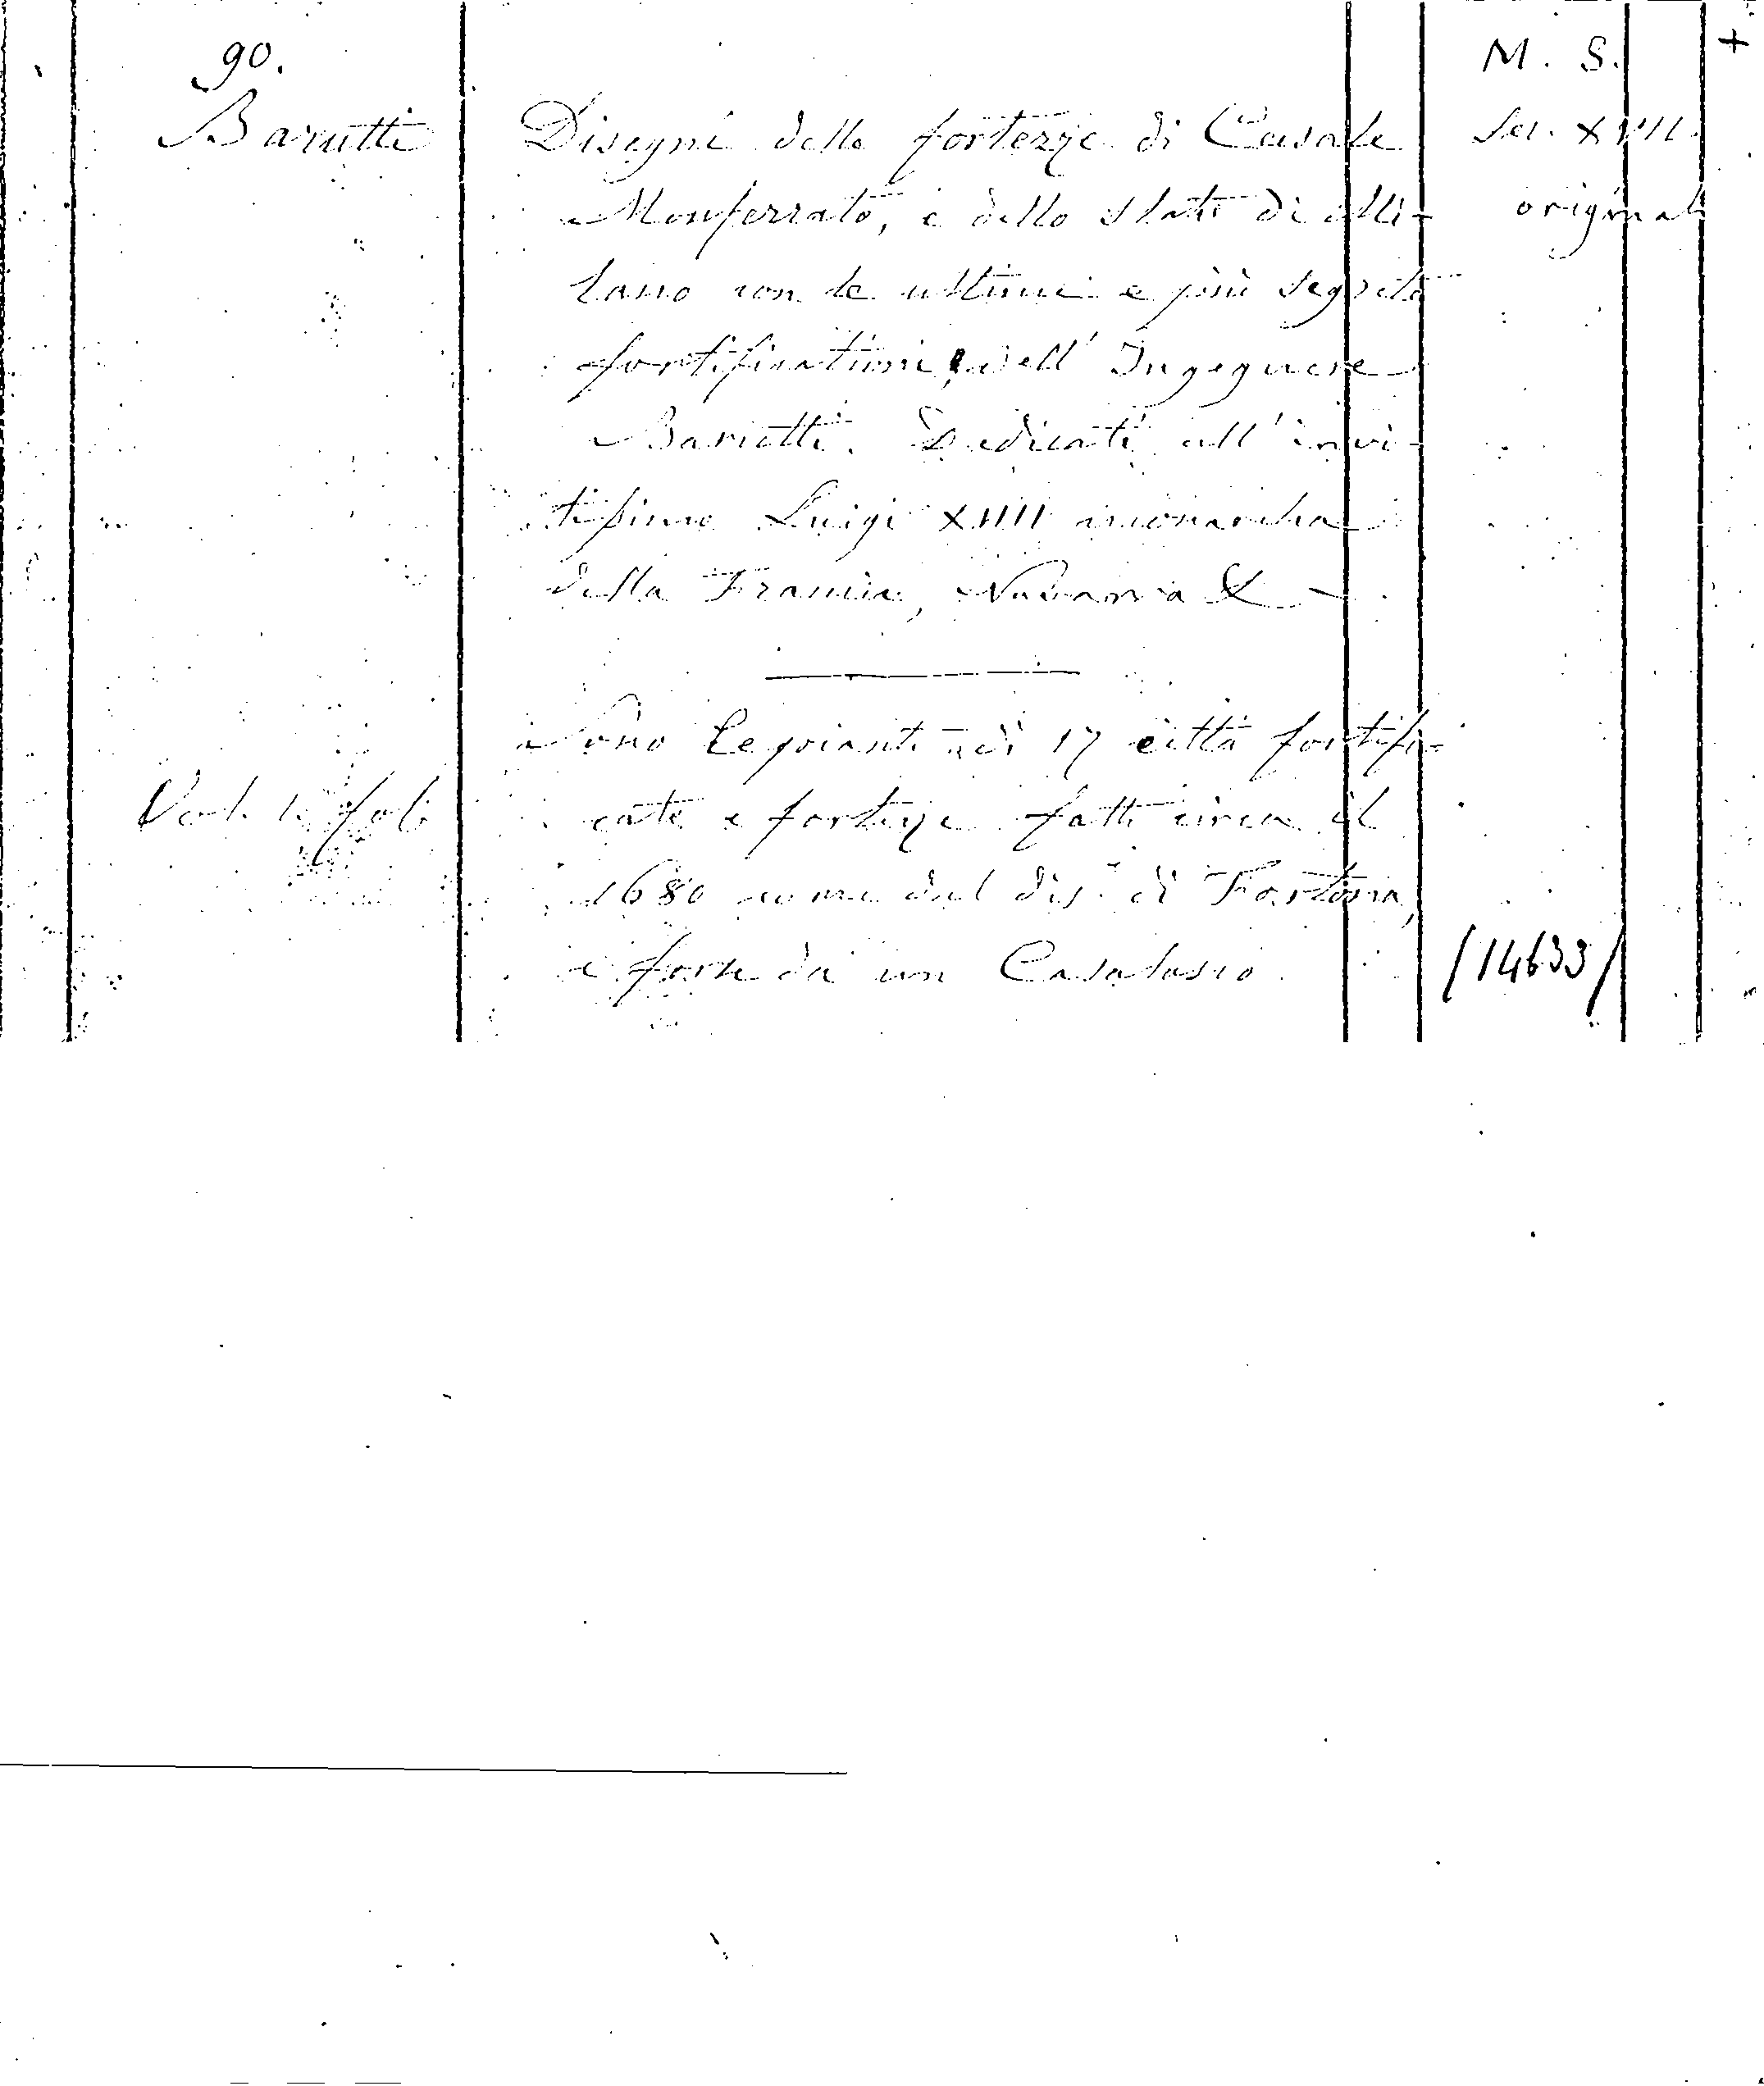 90.
M. S. +
Barutti
Disegni delle fortezze di Casale
Sec. XVII.
Monferrato, e dello Stato di Mi-
originale
lano con le ultime e più segrete
fortificationi, dell' Ingegnere
Bariotti. Dedicati all' invi-
tissimo Luigi XIIII monarcha
della Francia, Navarra &
Sono le piante di 17 città fortifi-
Vol. 1. fol.
cate e fortezze fatte circa il
1680 come dal dis. di Tortona,
e forse da un Casalasco.
/14633/